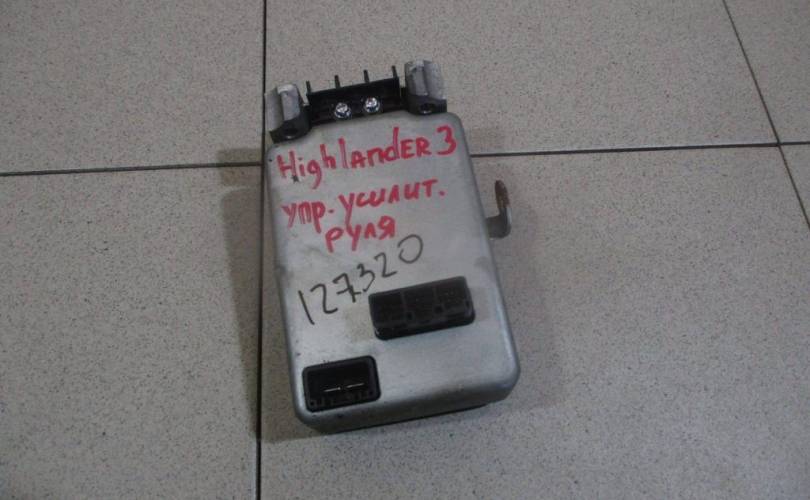 HighlandER 3
упр. усилит.
РУЛЯ
127320